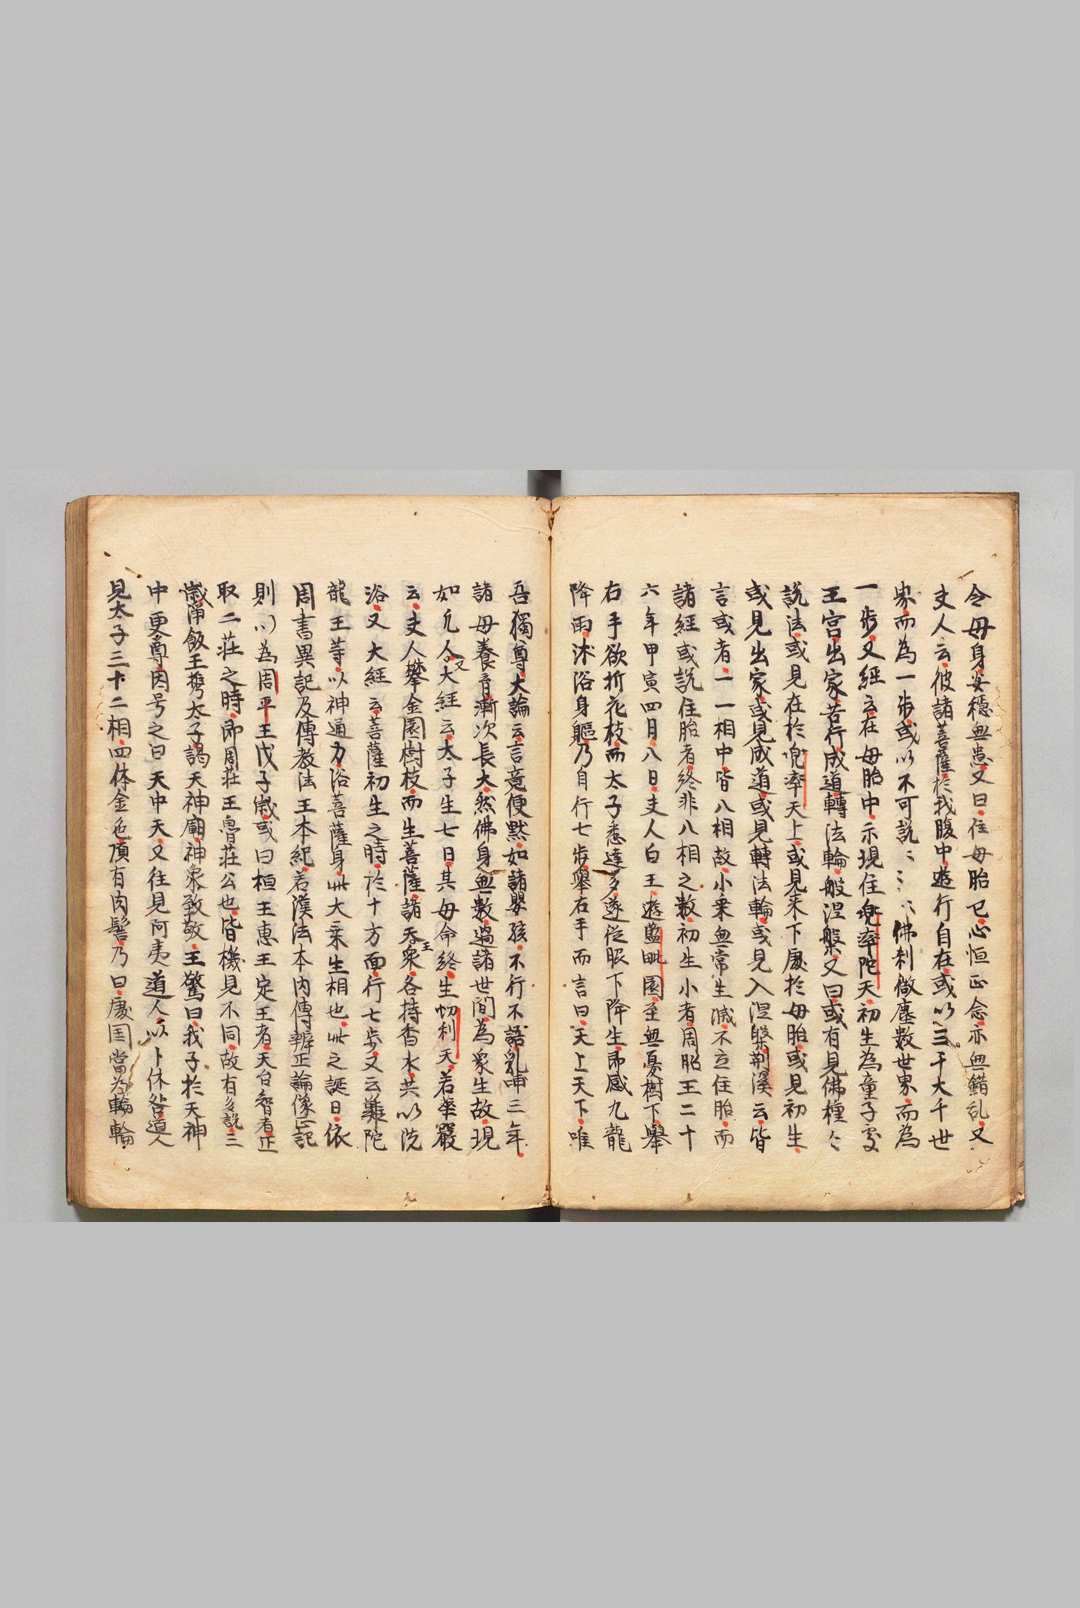 令母身安穩無患又曰住母胎已心恒正念亦無錯乱又
夫人云彼諸菩薩於我腹中遊行自在或以三千大千世
界而為一步或以不可說〻〻〻佛刹微塵数世界而為
一步又経云在母胎中示現住兜率陀天初生為童子処
王宮出家苦行成道轉法輪般涅槃又曰或有見佛種〻
説法或見在於兜率天上或見来下處於母胎或見初生
或見出家或見成道或見轉法輪或見入涅槃荆溪云皆
言或者一一相中皆八相故小乗無常生滅不立住胎而
諸経或説住胎者終非八相之数初生小者周昭王二十
六年甲寅四月八日夫人白王遊藍毗園至無憂樹下舉
右手欲折花枝而太子悉達多遂従眼下降生即感九龍
降雨沐浴身軀乃自行七步舉右手而言曰天上天下唯
吾獨尊大論云言竟便黙如諸嬰孩不行不語乳哺三年
諸母養育漸次長大然佛身無数過諸世間為衆生故現
如凡人又大経云太子生七日其母命終生忉利天若華嚴
云夫人攀金園樹枝而生菩薩諸天王衆各持香水共以洗
浴又大経云菩薩初生之時於十方面行七步又云難陀
龍王等以神通力浴菩薩身此大乗生相也此之誕日依
周書異記及傳教法王本紀若漢法本内傳辨正論像正記
則以為周平王戊子歳或曰桓王惠王定王者天台智者正
取二莊之時即周莊王魯莊公也皆機見不同故有多説三
歳淨飯王携太子謁天神廟神衆致敬王驚曰我子於天神
中更尊因号之曰天中天又往見阿夷道人以卜休咎道人
見太子三十二相四体金色頂有肉髻乃曰處国當為輪輪